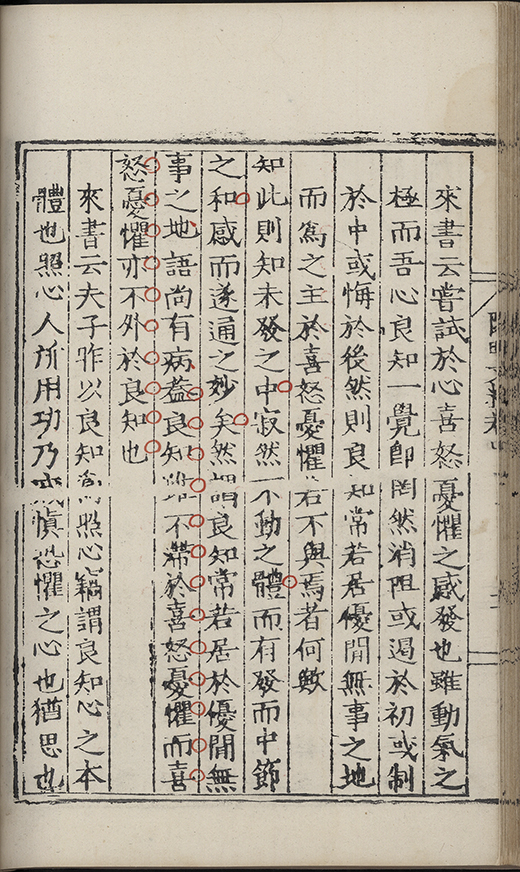 來書云嘗試於心喜怒憂懼之感發也雖動氣之
極而吾心良知一覺即罔然消阻或遏於初或制
於中或悔於後然則良知常若居優閒無事之地
而爲之主於喜怒憂懼若不與焉者何歟
知此則知未發之中寂然不動之體而有發而中節
之和感而遂通之妙矣然謂良知常若居於優閒無
事之地語尚有病蓋良知雖不滯於喜怒憂懼而喜
怒憂懼亦不外於良知也
來書云夫子昨以良知爲照心竊謂良知心之本
體也照心人所用功乃戒慎恐懼之心也猶思也